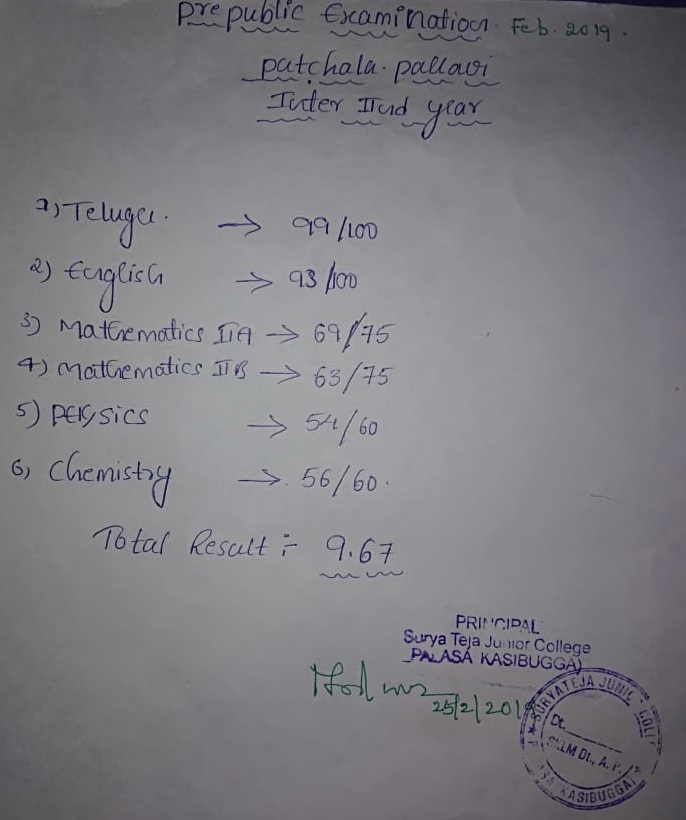 Prepublic Examination Feb. 2019.
patchala. pallavi
Inter IInd year
1) Telugu. → 99/100
2) English → 93/100
3) Mathematics IIA → 69/75
4) Mathematics IIB → 63/75
5) Physics → 54/60
6) Chemistry → 56/60.
Total Result :- 9.67
PRINCIPAL
Surya Teja Junior College
PALASA KASIBUGGA)
25/2/2019
SURYATEJA JUNI
Dt.
SKLM Dt., A. P.
KASIBUGGA)